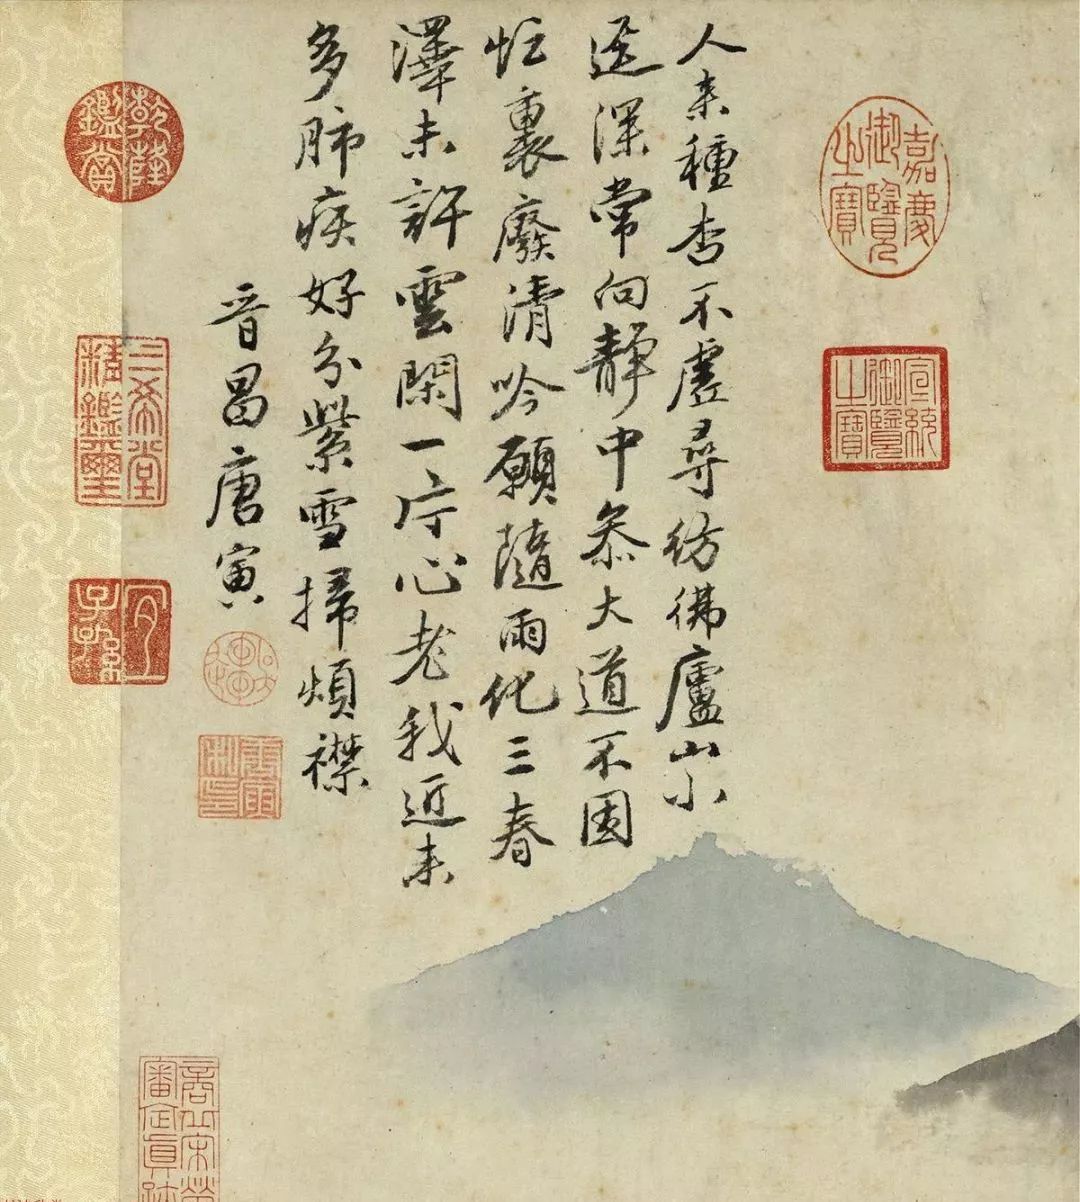 嘉慶
御覽
之寶
宣統
御覽
之寶
人来種杏不虛尋彷彿廬山小
逕深常向靜中參大道不因
忙裏廢清吟願隨雨化三春
澤未許雲閑一片心老我近来
多肺疾好分紫雪掃煩襟
晉昌唐寅
唐寅
私印
乾隆
鑑賞
三希堂
精鑑璽
宜
子孫
商丘宋犖
審定真跡